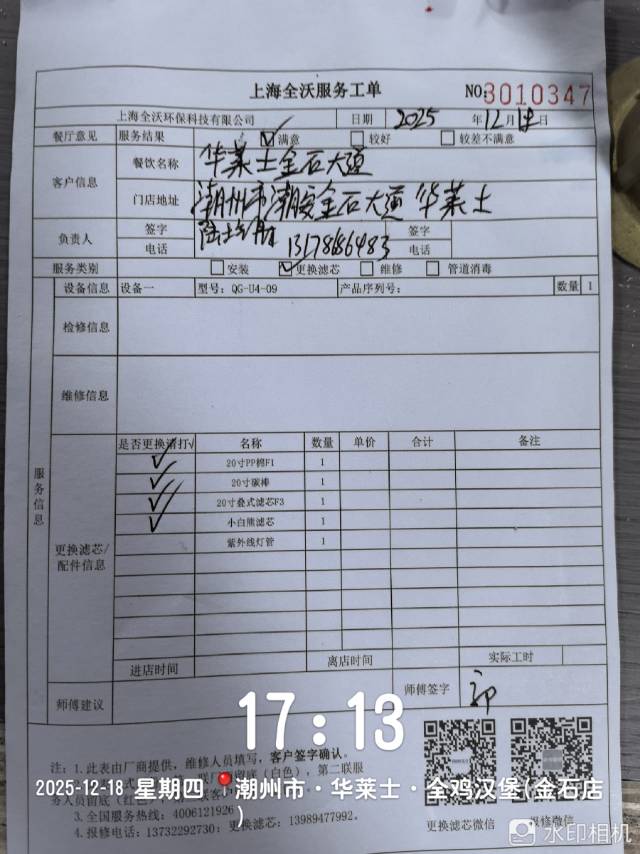 上海全沃服务工单
NO:3010347
上海全沃环保科技有限公司 日期 2025 年 12 月 18 日
餐厅意见 服务结果 ☑满意 □较好 □较差不满意
客户信息 餐饮名称 华莱士金石大道
门店地址 潮州市潮安金石大道 华莱士
负责人 签字 签字
电话 电话
服务类别 □安装 ☑更换滤芯 □维修 □管道消毒
服务信息
设备信息 设备一 型号: QG-U4-09 产品序列号: 数量 1
检修信息
维修信息
更换滤芯/配件信息
是否更换请打√ 名称 数量 单价 合计 备注
√ 20寸PP棉F1 1
√ 20寸碳棒 1
√ 20寸叠式滤芯F3 1
√ 小白熊滤芯 1
紫外线灯管 1
进店时间 离店时间 实际工时
师傅建议 师傅签字 郭
17:13
注: 1.此表由厂商提供, 维修人员填写, 客户签字确认。
2025-12-18 星期四 潮州市·华莱士·全鸡汉堡(金石店)
3.全国服务热线: 4006121926
4.报修电话: 13732292730; 更换滤芯: 13989477992.
更换滤芯微信 报修微信
水印相机